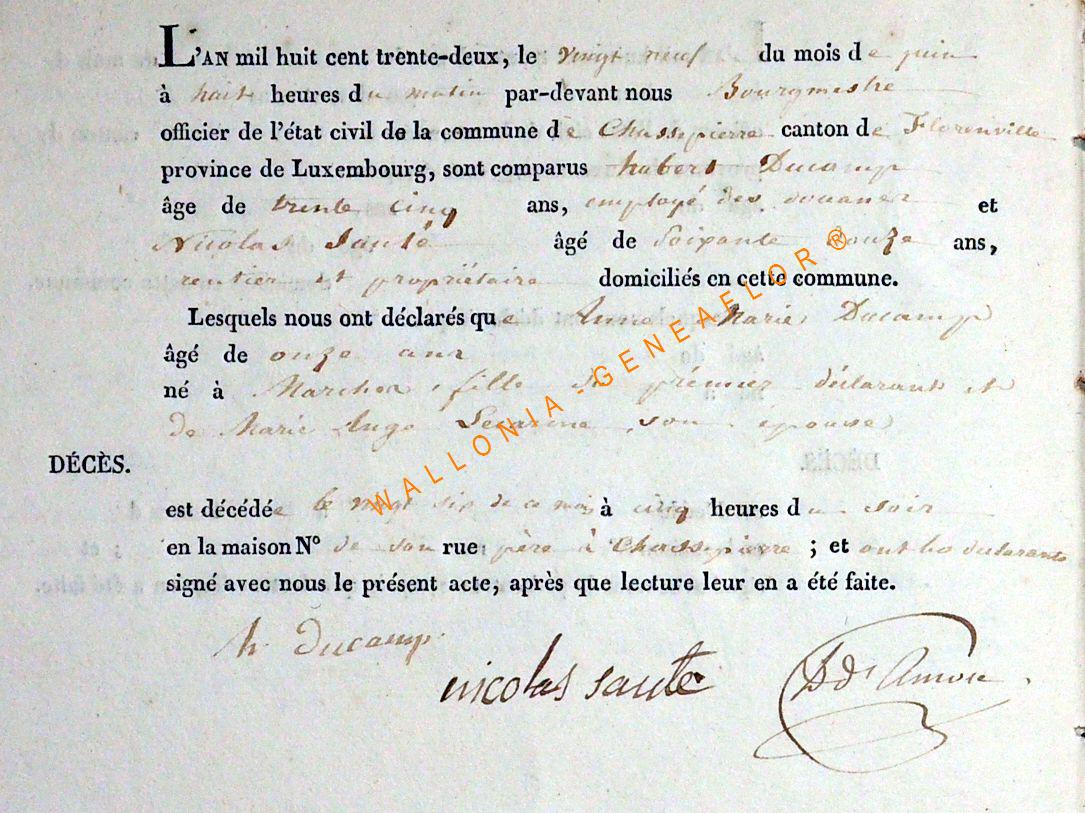 L'AN mil huit cent trente-deux, le vingt neuf du mois de juin
à huit heures du matin par-devant nous Bourgmestre
officier de l'état civil de la commune de Chassepierre canton de Florenville
province de Luxembourg, sont comparus hubert Ducamp
âge de trente cinq ans, employé des douanes et
Nicolas Sauté âgé de Soixante douze ans,
rentier et propriétaire domiciliés en cette commune.
Lesquels nous ont déclarés que Anne Marie Ducamp
âgé de onze ans
né à fille du prémier déclarant et
de Marie Ange son épouse
DÉCÈS.
est décédée le vingt six de ce mois à cinq heures du soir
en la maison N° de son rue père à Chassepierre ; et ont les déclarants
signé avec nous le présent acte, après que lecture leur en a été faite.
h Ducamp
nicolas saute
WALLONIA - GENEAFLOR ®